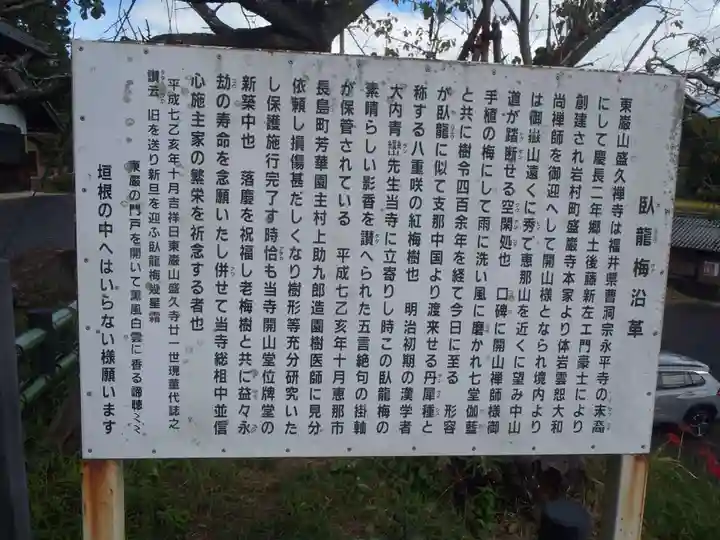 臥龍梅沿革
東巌山盛久禅寺は福井県曹洞宗永平寺の末裔
にして慶長二年郷土後藤新左エ門豪士により
創建され岩村町盛巌寺本家より体岩雲恕大和
尚禅師を御迎へして開山様となられ境内より
は御嶽山遠くに秀で恵那山を近くに望み中山
道が踏断せる空閑処也 口碑に開山禅師様御
手植の梅にして雨に洗い風に磨かれ七堂伽藍
と共に樹令四百余年を経て今日に至る 形容
が臥龍に似て支那中国より渡来せる丹犀種と
称する八重咲の紅梅樹也 明治初期の漢学者
大内青巒先生当寺に立寄りし時この臥龍梅の
素晴らしい影香を讃へられた五言絶句の掛軸
が保管されている 平成七乙亥年十月恵那市
長島町芳華園主村上助九郎造園樹医師に見分
依頼し損傷甚だしくなり樹形等充分研究いた
し保護施行完了す時恰も当寺開山堂位牌堂の
新築中也 落慶を祝福し老梅樹と共に益々永
劫の寿命を念願いたし併せて当寺総相中並信
心施主家の繁栄を祈念する者也
平成七乙亥年十月吉祥日東巌山盛久寺廿一世現董代誌之
讃云 旧を送り新旦を迎ふ臥龍梅幾星霜
東巌の門戸を開いて薫風白雲に香る諦聴〱
垣根の中へはいらない様願います